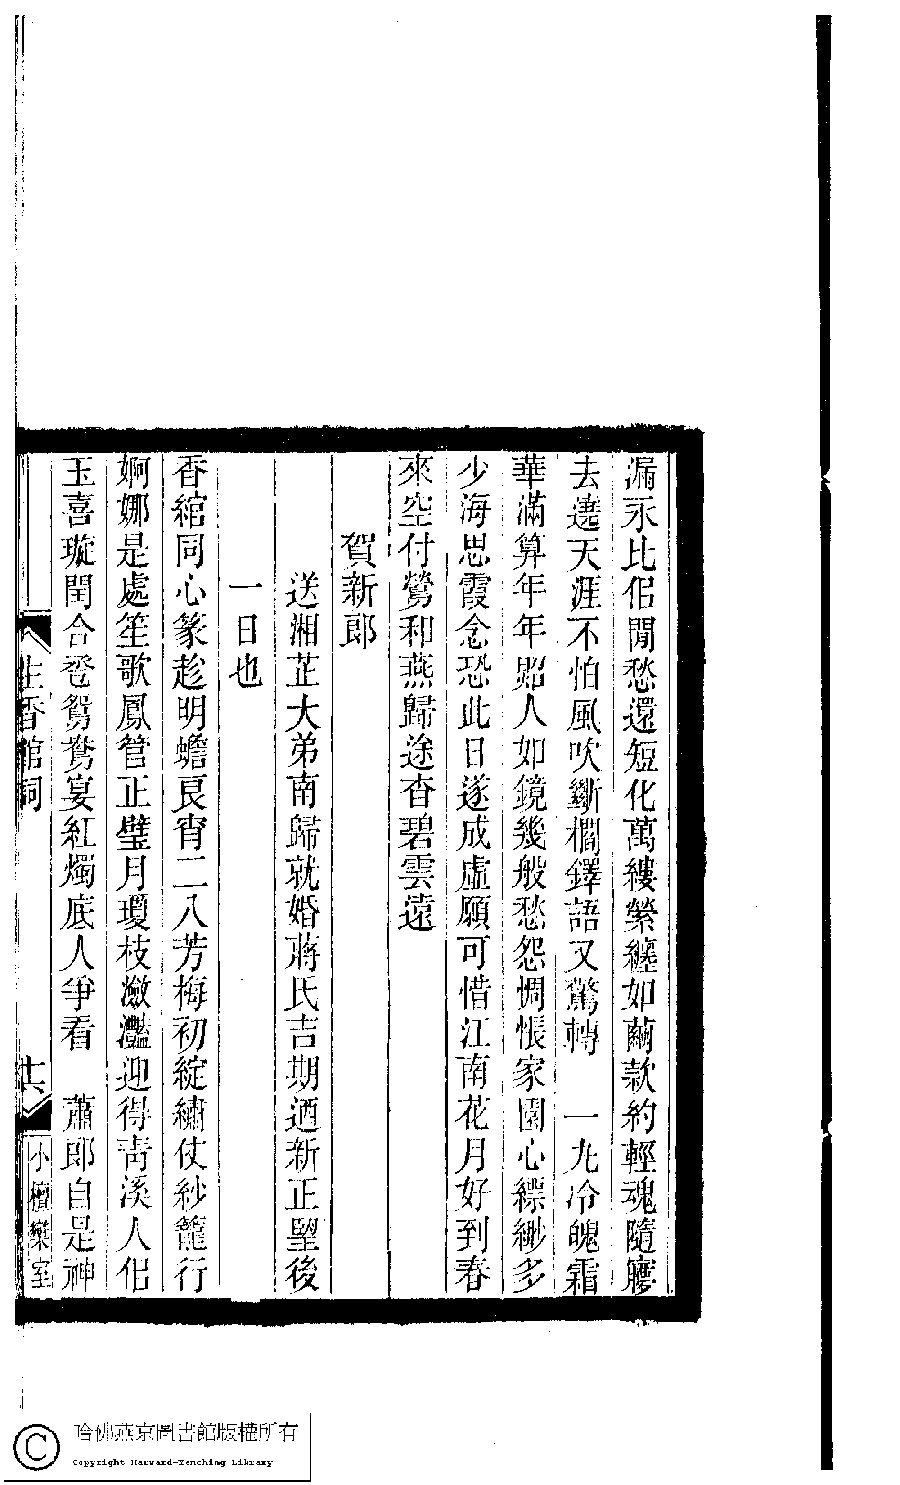 漏永比侶閒愁還短化萬縷縈纏如繭款約輕魂隨塵
去遶天涯不怕風吹斷櫩鐸語又驚轉　一丸冷魄霜
華滿算年年照人如鏡幾般愁怨惆悵家園心縹緲多
少海思霞念恐此日遂成虛願可惜江南花月好到春
來空付鶯和燕歸途杳碧雲遠
賀新郎
送湘芷大弟南歸就婚蔣氏吉期迺新正望後
一日也
香綰同心篆趁明蟾良宵二八芳梅初綻繡仗紗籠行
婀娜是處笙歌鳳管正璧月瓊枝瀲灩迎得青溪人似
玉喜璇閨合巹鴛鴦宴紅燭底人爭看　蕭郎自是神
生香館詞
十六
小檀欒室
哈佛燕京圖書館版權所有
Copyright Harvard-Yenching Library